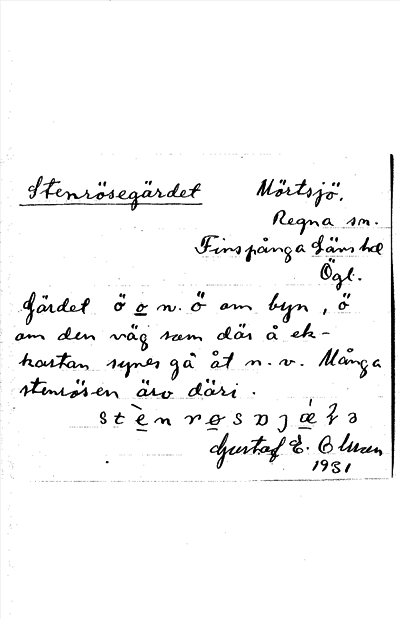 Stenrösegärdet
Mörtsjö.
Regna sn.
Finspånga läns hd
Ögl.
Gärdet ö o n. ö om byn, ö
om den väg som där å ek-
kartan synes gå åt n. v. Många
stenrösen äro däri.
Gustaf E. Olsson
1931